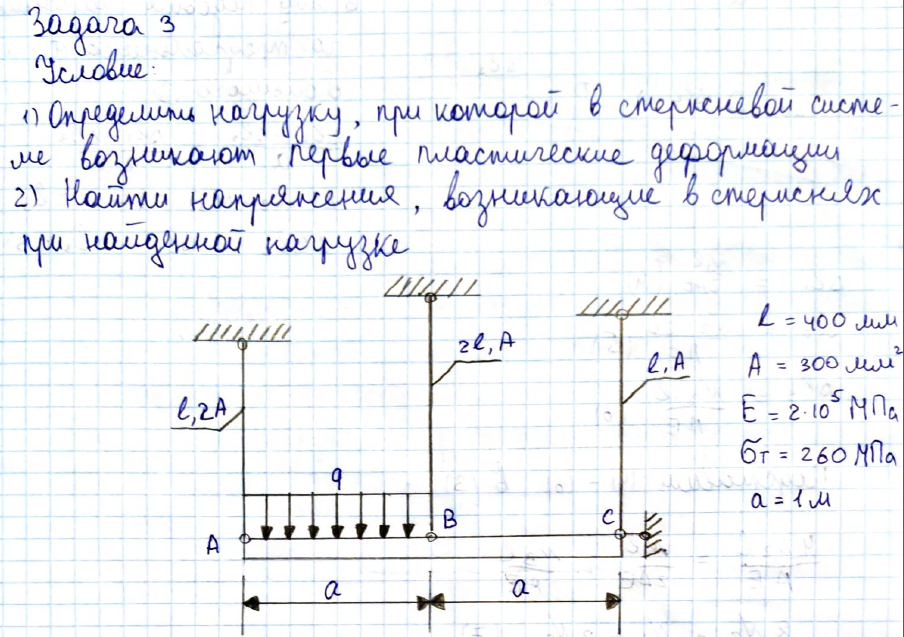 Задача 3
Условие:
1) Определить нагрузку, при которой в стержневой систе-
ме возникают первые пластические деформации
2) Найти напряжения, возникающие в стержнях
при найденной нагрузке
l = 400 мм
2l, A
l, A
A = 300 мм²
l, 2A
E = 2·10⁵ МПа
σт = 260 МПа
q
a = 1 м
A
B
C
a
a